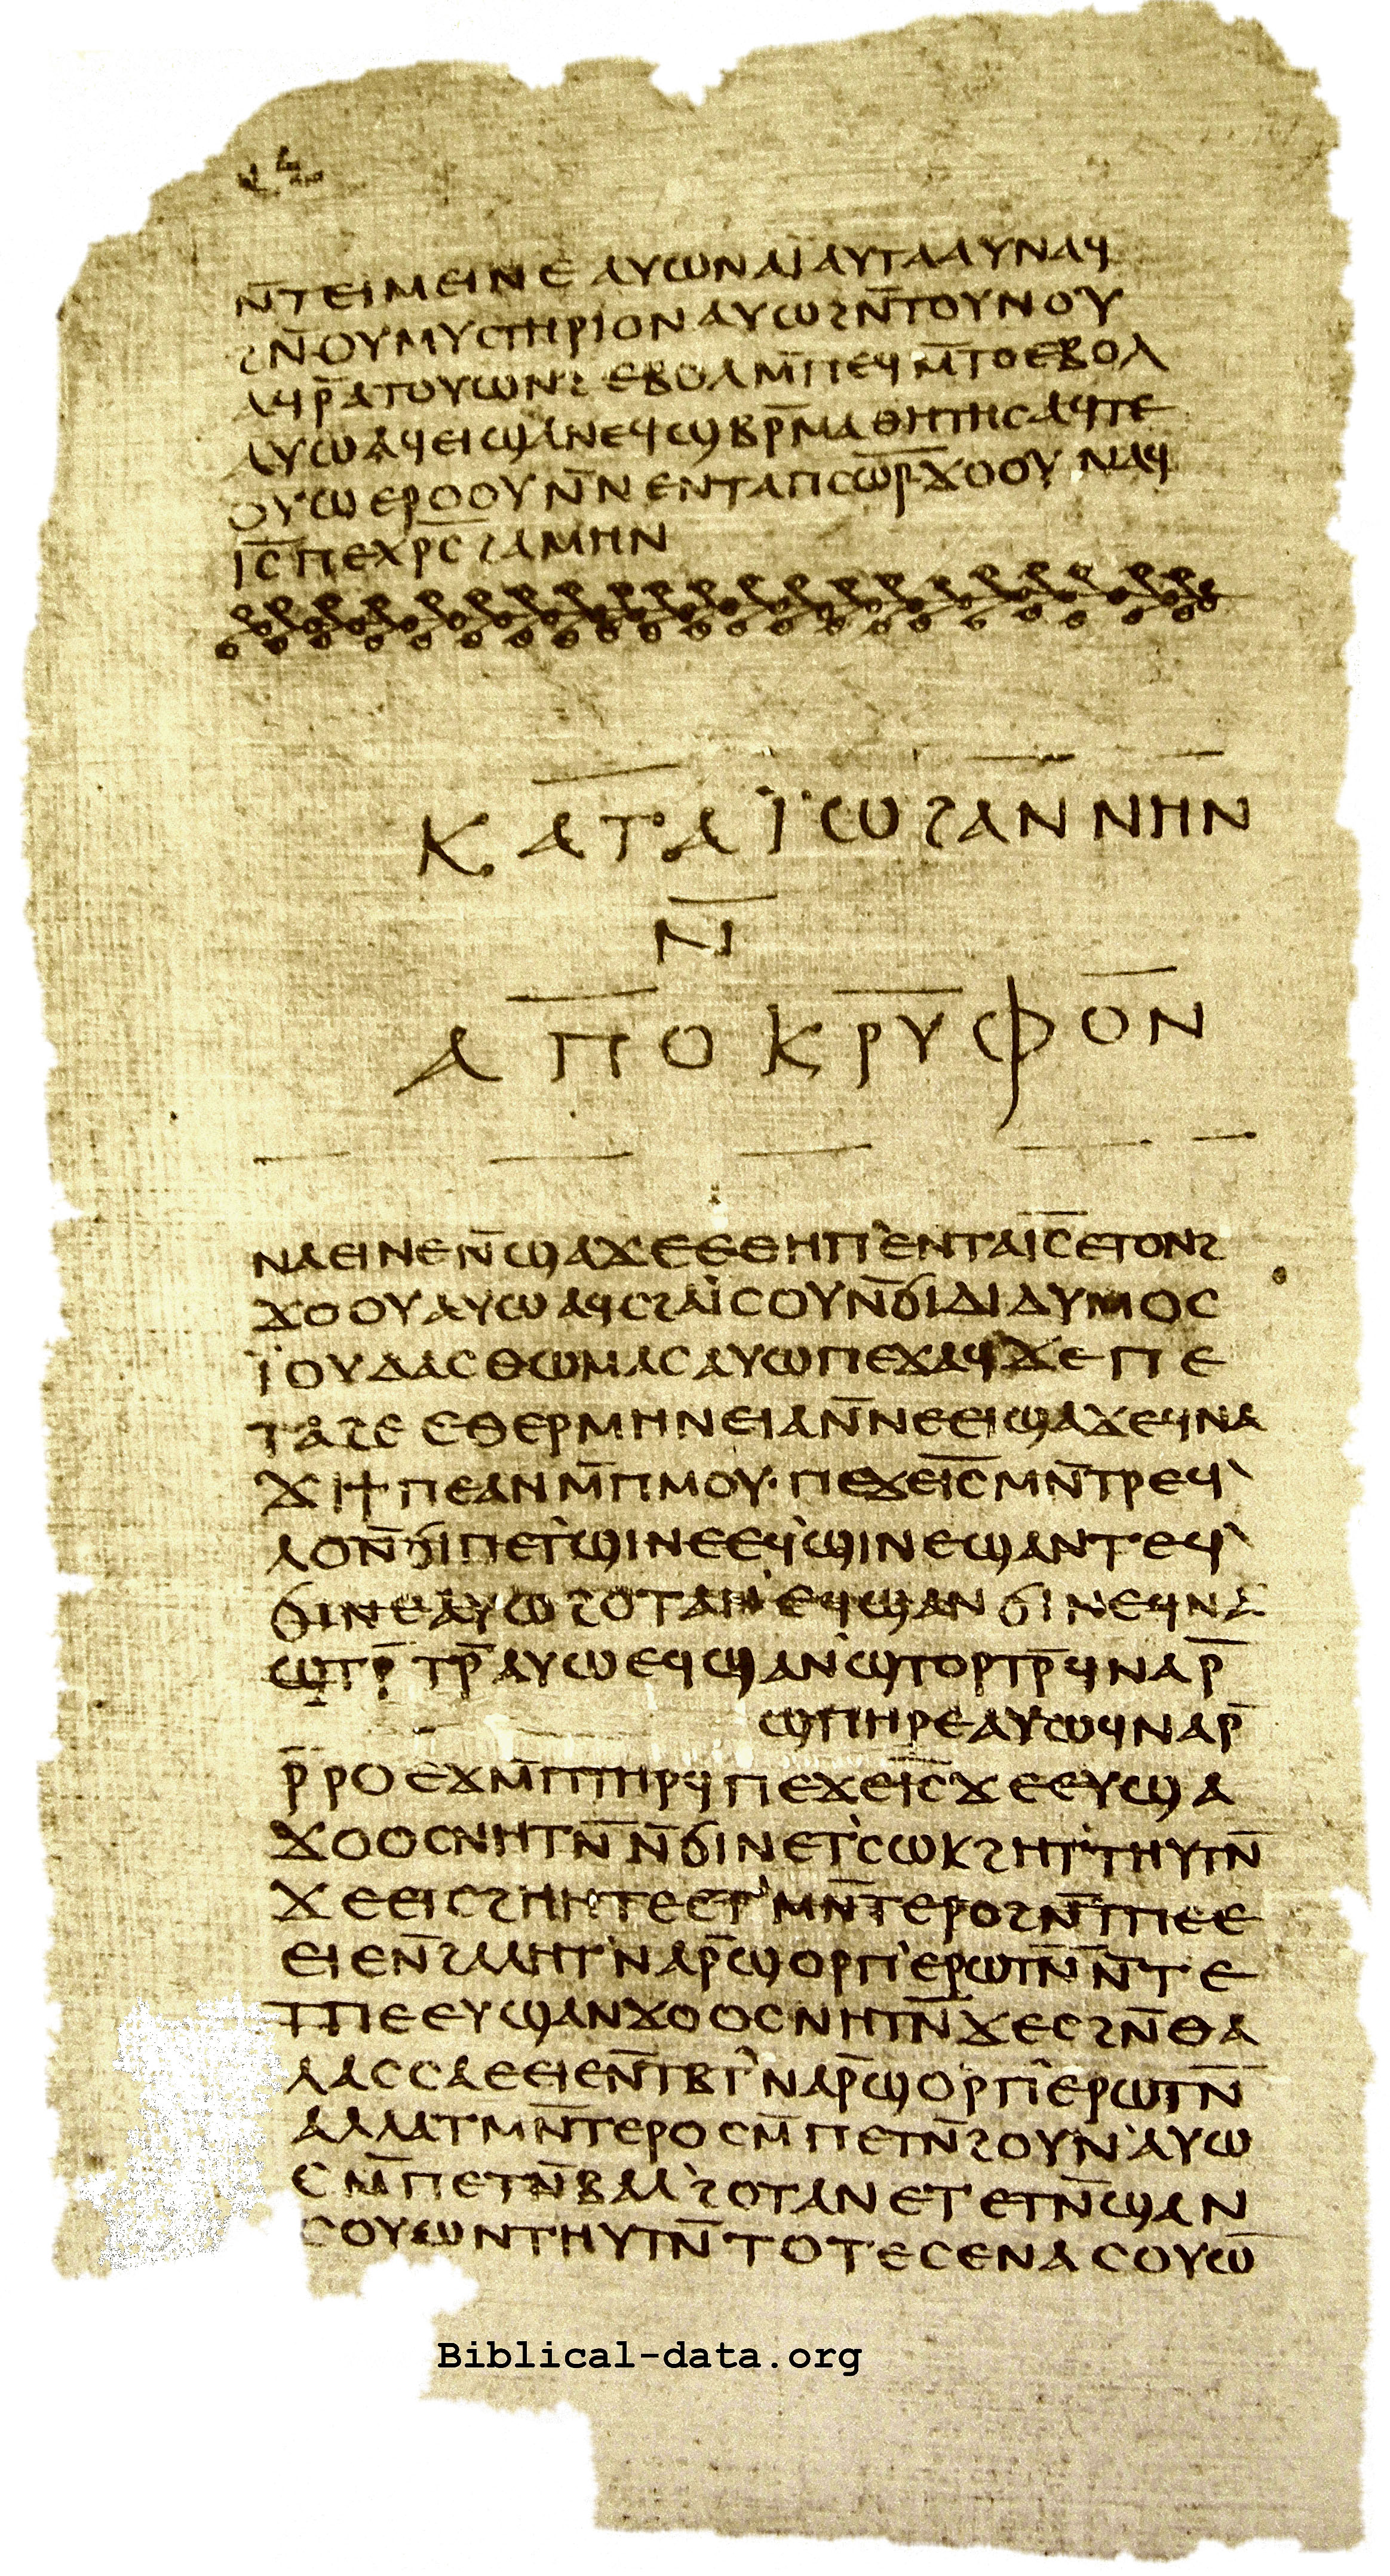 ⲛ̄ⲧⲉⲓⲙⲉⲓⲛⲉ ⲁⲩⲱ ⲛⲁⲓ̈ ⲁⲩⲧⲁⲁⲩ ⲛⲁϥ
ϩⲛ̄ ⲟⲩⲙⲩⲥⲧⲏⲣⲓⲟⲛ ⲁⲩⲱ ϩⲛ̄ ⲧⲟⲩⲛⲟⲩ
ⲁϥⲣ̄ ⲁⲧⲟⲩⲱⲛϩ ⲉⲃⲟⲗ ⲙ̄ⲡⲉϥⲙ̄ⲧⲟ ⲉⲃⲟⲗ
ⲁⲩⲱ ⲁϥⲉⲓ ϣⲁ ⲛⲉϥϣⲃⲣ̄ⲙⲁⲑⲏⲧⲏⲥ ⲁϥⲧⲉ
ⲟⲩⲱ ⲉⲣⲟⲟⲩ ⲛ̄ⲛⲉⲛⲧⲁ ⲡⲥⲱ̄ⲣ̄ ϫⲟⲟⲩ ⲛⲁϥ
ⲓ̄ⲥ̄ ⲡⲉⲭⲣ̄ⲥ̄ ϩⲁⲙⲏⲛ
ⲕⲁⲧⲁ ⲓ̈ⲱϩⲁⲛⲛⲏⲛ
ⲛ̄
ⲁⲡⲟⲕⲣⲩⲫⲟⲛ
ⲛⲁⲉⲓ ⲛⲉ ⲛ̄ϣⲁϫⲉ ⲉⲑⲏⲡ' ⲉⲛⲧⲁ ⲓ̄ⲥ̄ ⲉⲧⲟⲛϩ
ϫⲟⲟⲩ ⲁⲩⲱ ⲁϥⲥϩⲁⲓ̈ⲥⲟⲩ ⲛ̄ϭⲓ ⲇⲓⲇⲩⲙⲟⲥ
ⲓ̈ⲟⲩⲇⲁⲥ ⲑⲱⲙⲁⲥ ⲁⲩⲱ ⲡⲉϫⲁϥ ϫⲉ ⲡⲉ
ⲧⲁϩⲉ ⲉⲑⲉⲣⲙⲏⲛⲉⲓⲁ ⲛ̄ⲛⲉⲉⲓϣⲁϫⲉ ϥⲛⲁ
ϫⲓ ϯⲡⲉ ⲁⲛ ⲙ̄ⲡⲙⲟⲩ· ⲡⲉϫⲉ ⲓ̄ⲥ̄ ⲙⲛ̄ⲧⲣⲉϥ'
ⲗⲟ ⲛ̄ϭⲓ ⲡⲉⲧ'ϣⲓⲛⲉ ⲉϥ'ϣⲓⲛⲉ ϣⲁⲛⲧⲉϥ'
ϭⲓⲛⲉ ⲁⲩⲱ ϩⲟⲧⲁⲛ' ⲉϥϣⲁⲛϭⲓⲛⲉ ϥⲛⲁ
ϣⲧⲣ̄ⲧⲣ̄ ⲁⲩⲱ ⲉϥϣⲁⲛ'ϣⲧⲟⲣⲧⲣ̄ ϥⲛⲁⲣ̄
ϣⲡⲏⲣⲉ ⲁⲩⲱ ϥⲛⲁⲣ̄
ⲣ̄ⲣⲟ ⲉϫⲙ̄ ⲡⲧⲏⲣϥ ⲡⲉϫⲉ ⲓ̄ⲥ̄ ϫⲉ ⲉⲩϣⲁ
ϫⲟⲟⲥ ⲛⲏⲧⲛ̄ ⲛ̄ϭⲓ ⲛⲉⲧ'ⲥⲱⲕ ϩⲏⲧ' ⲧⲏⲩⲧⲛ̄
ϫⲉ ⲉⲓⲥϩⲏⲏⲧⲉ ⲉⲧ'ⲙⲛ̄ⲧⲉⲣⲟ ϩⲛ̄ ⲧⲡⲉ ⲉ
ⲉⲓⲉ ⲛ̄ϩⲁⲗⲏⲧ' ⲛⲁⲣ̄ ϣⲟⲣⲡ' ⲉⲣⲱⲧⲛ̄ ⲛ̄ⲧⲉ
ⲧⲡⲉ ⲉⲩϣⲁⲛϫⲟⲟⲥ ⲛⲏⲧⲛ̄ ϫⲉ ⲥϩⲛ̄ ⲑⲁ
ⲗⲁⲥⲥⲁ ⲉⲉⲓⲉ ⲛ̄ⲧⲃⲧ' ⲛⲁⲣ̄ ϣⲟⲣⲡ' ⲉⲣⲱⲧⲛ̄
ⲁⲗⲗⲁ ⲧⲙⲛ̄ⲧⲉⲣⲟ ⲥⲙ̄ⲡⲉⲧⲛ̄ϩⲟⲩⲛ' ⲁⲩⲱ
ⲥⲙ̄ⲡⲉⲧⲛ̄ⲃⲁⲗ' ϩⲟⲧⲁⲛ ⲉⲧⲉⲧⲛ̄ϣⲁⲛ
ⲥⲟⲩⲱⲛ ⲧⲏⲩⲧⲛ̄ ⲧⲟⲧⲉ ⲥⲉⲛⲁⲥⲟⲩⲱ̄
Biblical-data.org